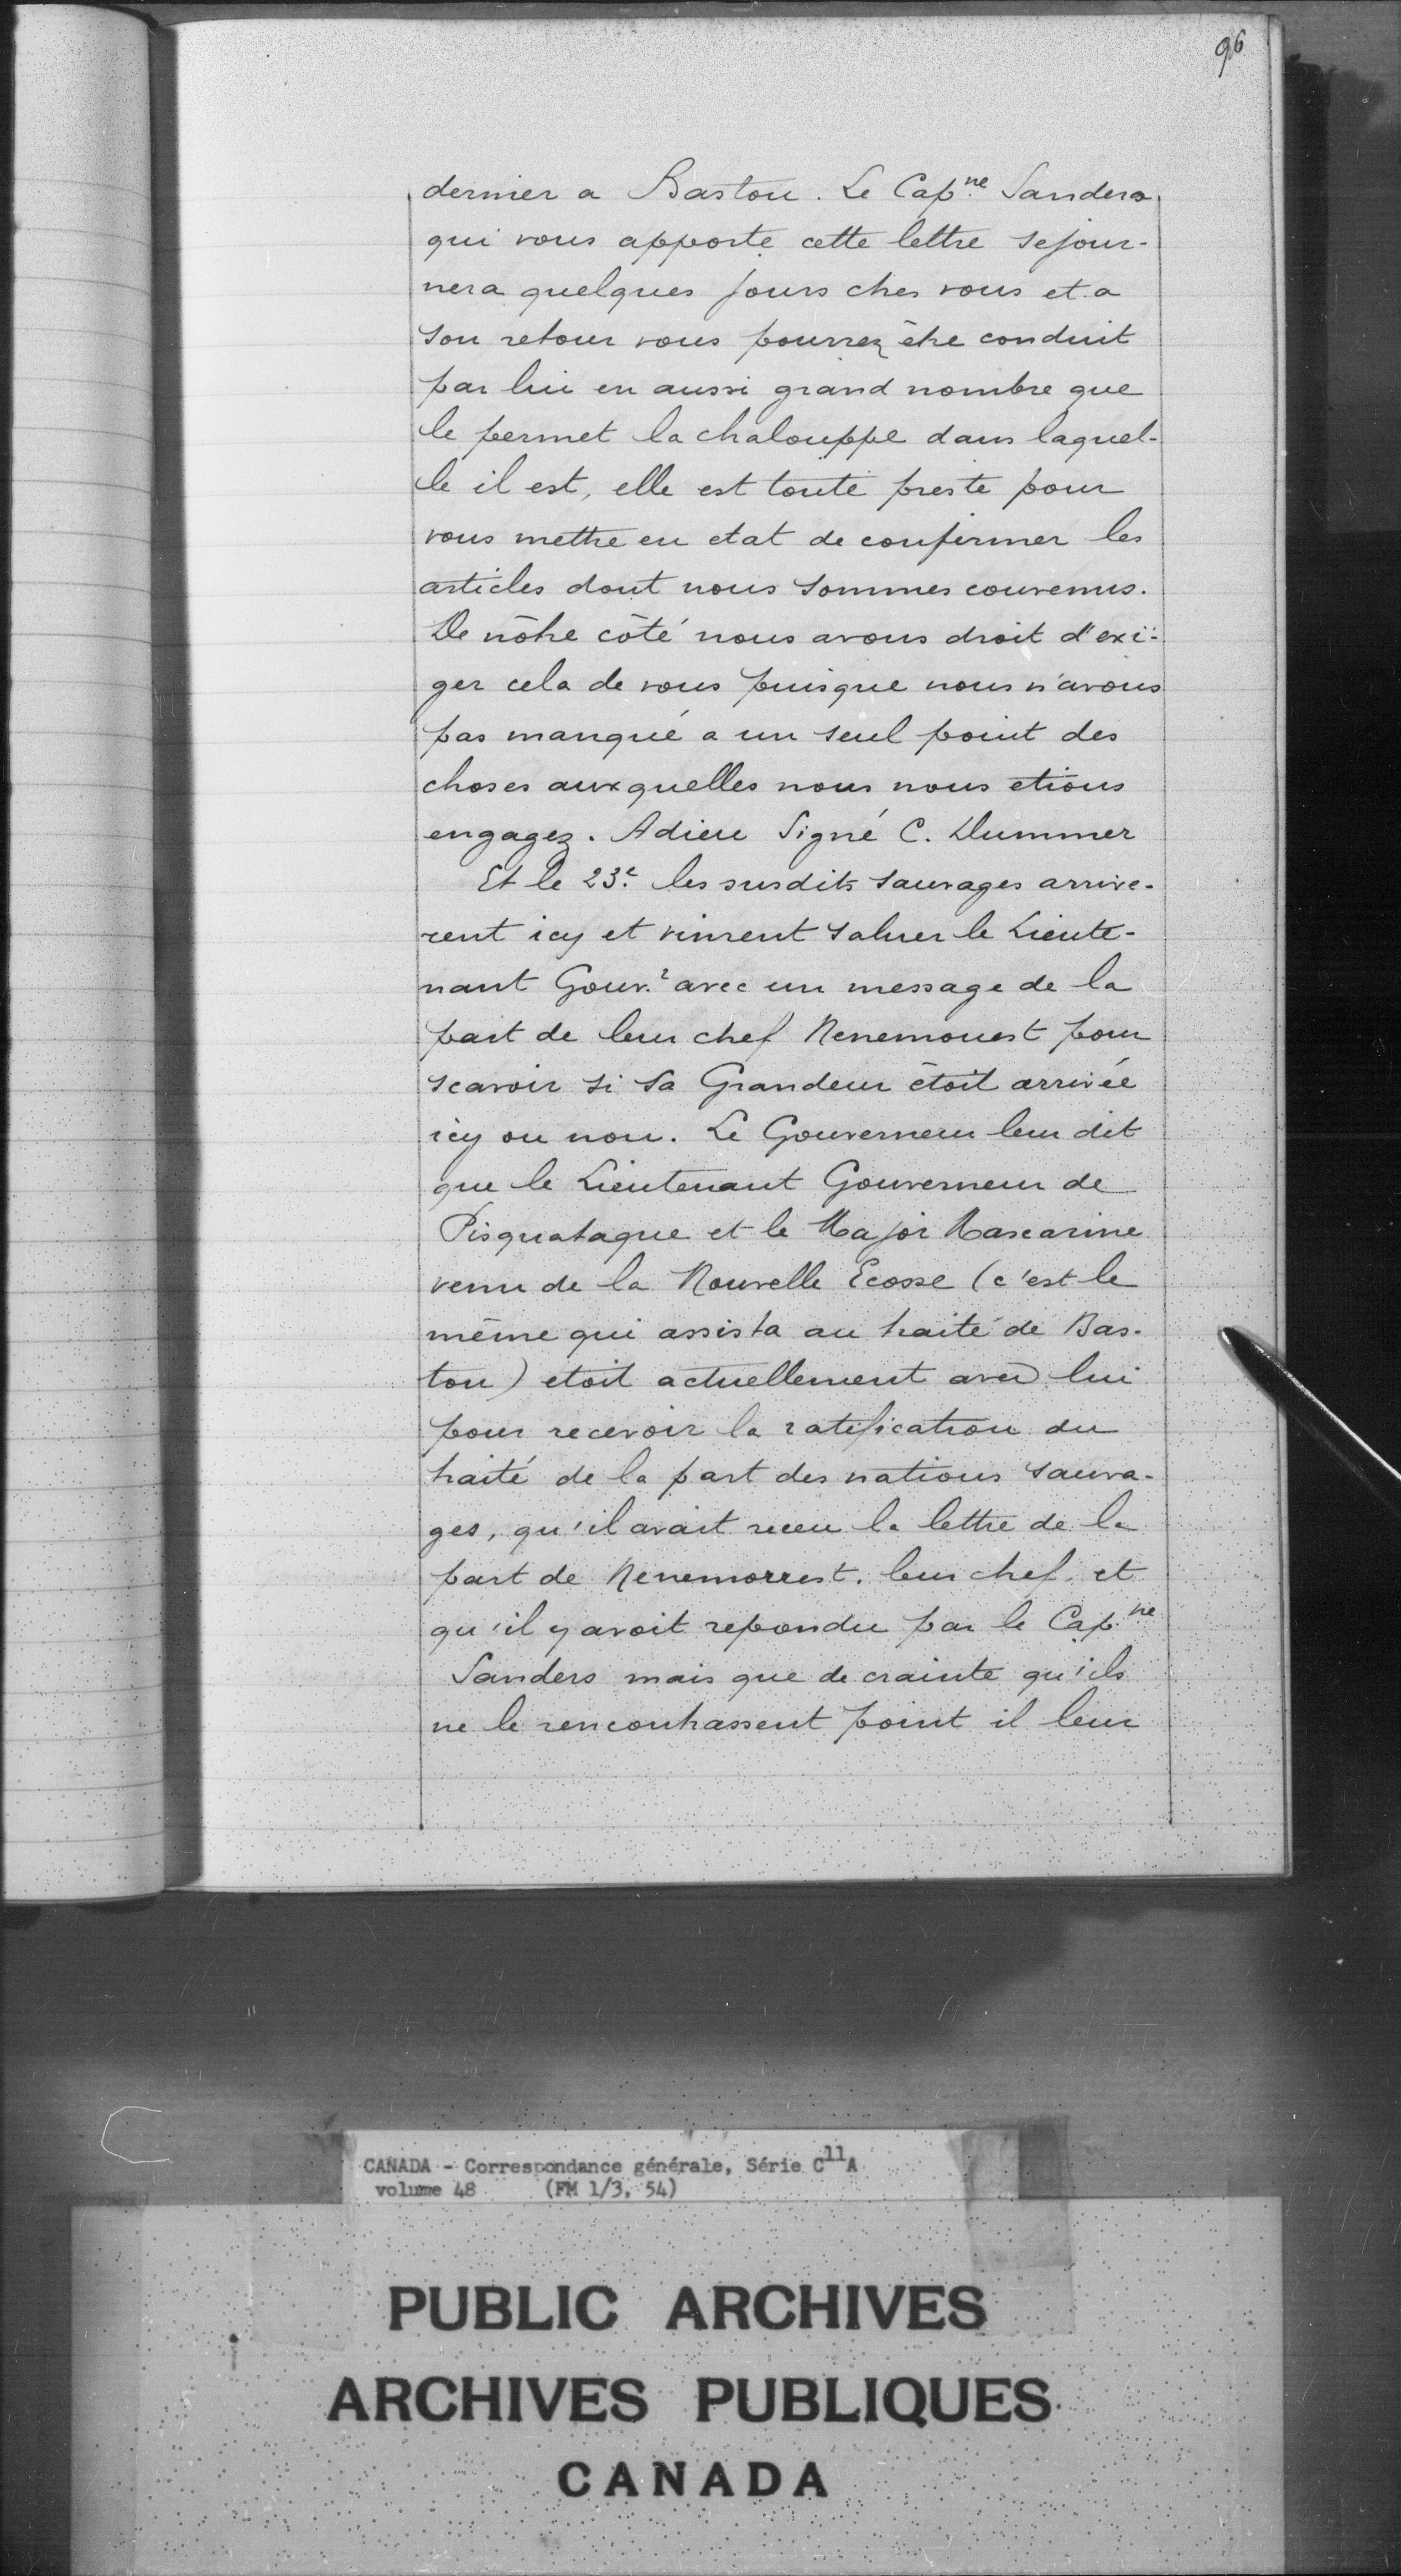 96
dernier a Baston. Le Cap.ne Sanders
qui vous apporte cette lettre sejour-
nera quelques jours ches vous et a
son retour vous pourrez être conduit
par lui en aussi grand nombre que
le permet la chalouppe dans laquel-
le il est, elle est toute preste pour
vous mettre en etat de confirmer les
articles dont nous sommes convenus.
De nôtre côté nous avons droit d'exi-
ger cela de vous puisque nous n'avons
pas manqué a un seul point des
choses auxquelles nous nous etions
engagez. Adieu Signé C. Dummer
Et le 23e. les susdits sauvages arrive-
rent icy et vinrent saluer le Lieute-
nant Gouv.r avec un message de la
part de leur chef Nenemouest pour
scavoir si Sa Grandeur étoit arrivée
icy ou non. Le Gouverneur leur dit
que le Lieutenant Gouverneur de
Pisquataque et le Major Mascarine
venu de la Nouvelle Ecosse (c'est le
même qui assista au traité de Bas-
ton) etoit actuellement avec lui
pour recevoir la ratification du
traité de la part des nations sauva-
ges, qu'il avait receu la lettre de la
part de Nenemorrest. leur chef. et
qu'il y avoit repondu par le Cap.ne
Sanders mais que de crainte qu'ils
ne le rencontrassent point il leur
CANADA - Correspondance générale, Série C11A
volume 48 (FM 1/3, 54)
PUBLIC ARCHIVES
ARCHIVES PUBLIQUES
CANADA